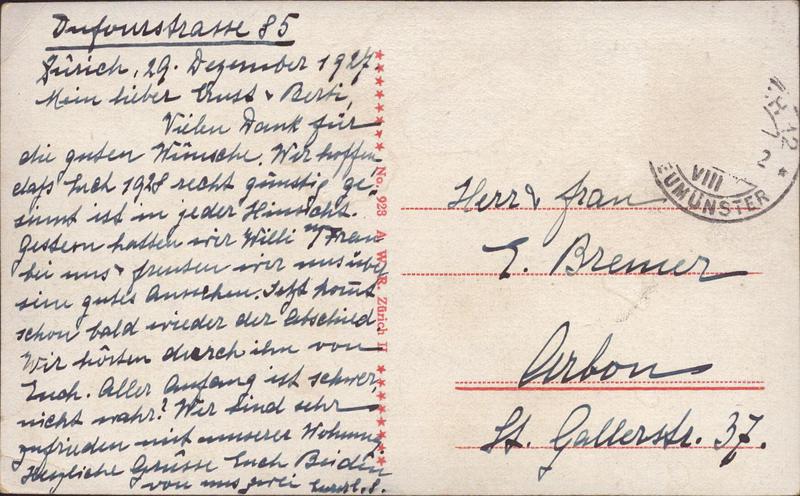 Dufourstrasse 85
Zürich, 29. Dezember 1927.
Mein lieber Ernst & Berti,
Vielen Dank für
die guten Wünsche. Wir hoffen
dass Euch 1928 recht günstig ge-
sinnt ist in jeder Hinsicht.
Gestern hatten wir Willi m/ Frau
bei uns & freuten wir uns über
sein gutes Aussehen. Jetzt kommt
schon bald wieder der Abschied.
Wir hörten durch ihn von
Euch. Aller Anfang ist schwer,
nicht wahr? Wir sind sehr
zufrieden mit unserer Wohnung
Herzliche Grüsse Euch Beiden
von uns zwei
No. 928 A. W. R. Zürich II
VIII
EUMÜNSTER
Herr & Frau
E. Bremer
Arbon
St. Gallerstr. 37.